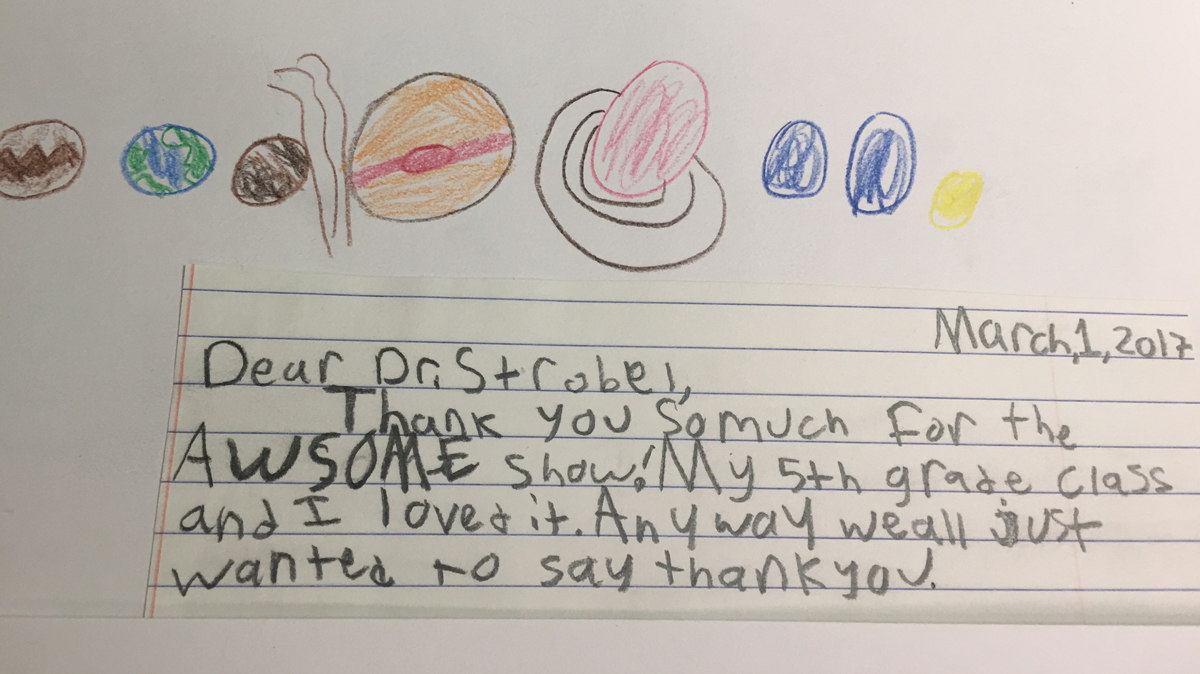 March,1,2017
Dear Dr. Strobel,
Thank you so much for the
AWSOME show! My 5th grade class
and I loved it. Anyway we all just
wanted to say thank you.